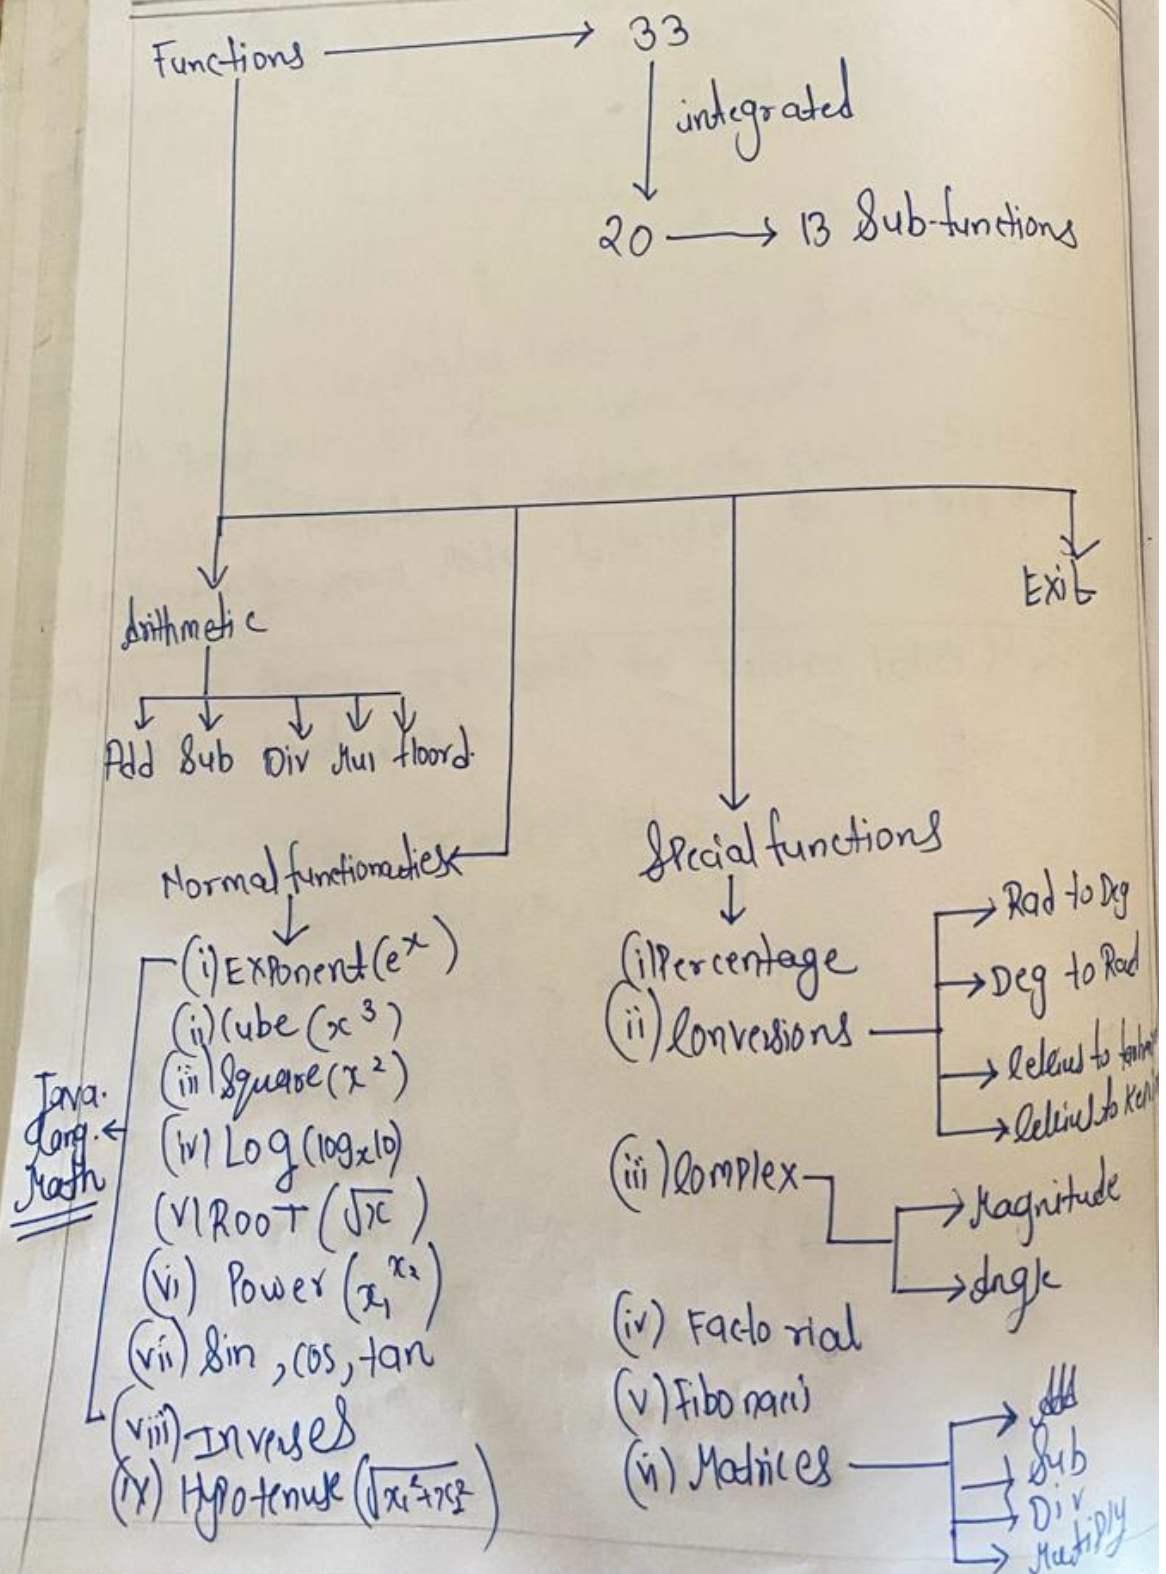 Functions → 33
integrated
20 → 13 Sub-functions
Arithmetic
Exit
Add Sub Div Mul floord.
Normal functionalities
(i) Exponent (e^x)
(ii) Cube (x^3)
(iii) Square (x^2)
(iv) Log (log_x 10)
(v) ROOT (√x)
(vi) Power (x₁^x₂)
(vii) Sin, cos, tan
(viii) Inverses
(ix) Hypotenuse (√x₁²+x₂²)
Java.
lang.
Math
Special functions
(i) Percentage
(ii) Conversions
Rad to Deg
Deg to Rad
Celcius to
Celcius to
(iii) Complex
Magnitude
Angle
(iv) Factorial
(v) Fibonacci
(vi) Matrices
Add
Sub
Div
Multiply